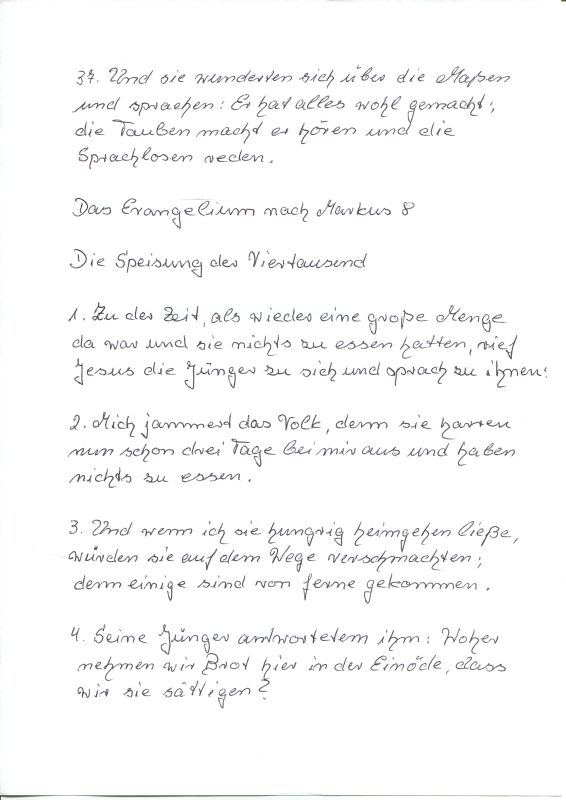 37. Und sie wunderten sich über die Maßen
und sprachen: Er hat alles wohl gemacht;
die Tauben macht er hören und die
Sprachlosen reden.
Das Evangelium nach Markus 8
Die Speisung der Viertausend
1. Zu der Zeit, als wieder eine große Menge
da war und sie nichts zu essen hatten, rief
Jesus die Jünger zu sich und sprach zu ihnen:
2. Mich jammert das Volk, denn sie harren
nun schon drei Tage bei mir aus und haben
nichts zu essen.
3. Und wenn ich sie hungrig heimgehen ließe,
würden sie auf dem Wege verschmachten;
denn einige sind von ferne gekommen.
4. Seine Jünger antworteten ihm: Woher
nehmen wir Brot hier in der Einöde, dass
wir sie sättigen?